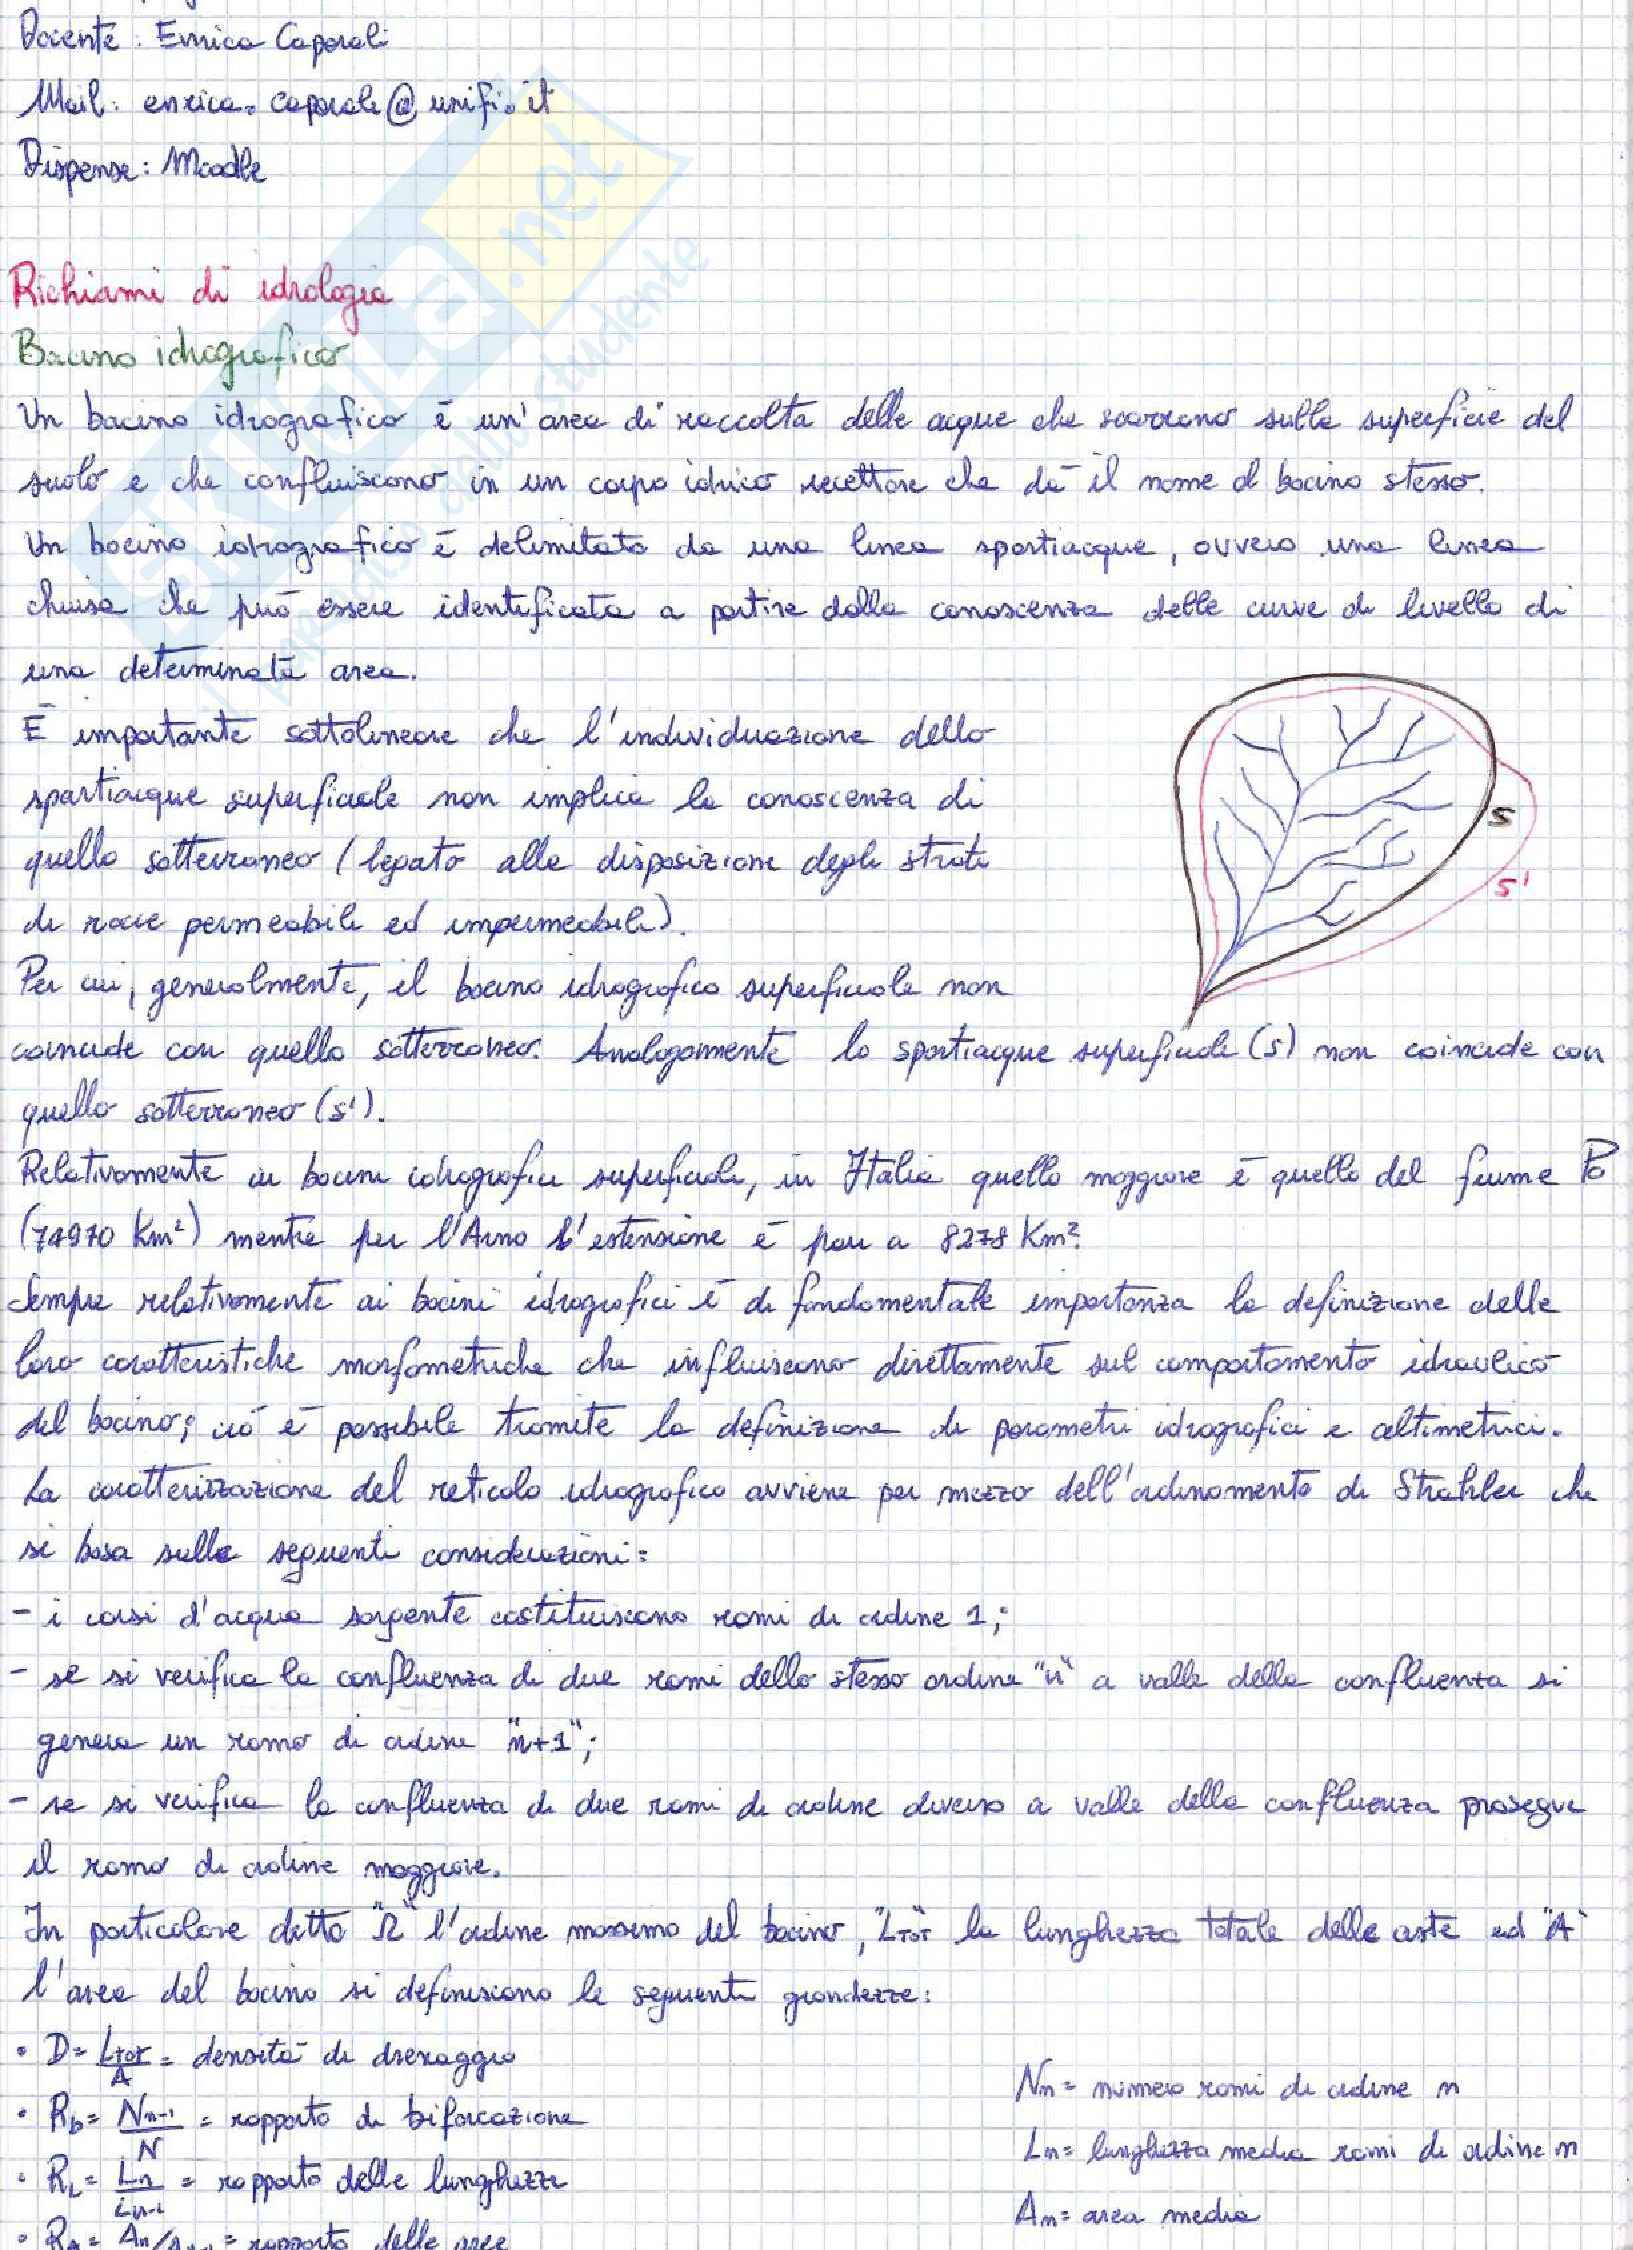 Docente: Enrica Caporali
Mail: enrica.caporali@unifi.it
Dispense: Moodle
Richiami di idrologia
Bacino idrografico
Un bacino idrografico è un'area di raccolta delle acque che scorrono sulla superficie del
suolo e che confluiscono in un corpo idrico recettore che dà il nome al bacino stesso.
Un bacino idrografico è delimitato da una linea spartiacque, ovvero una linea
chiusa che può essere identificata a partire dalla conoscenza delle curve di livello di
una determinata area.
È importante sottolineare che l'individuazione dello
spartiacque superficiale non implica la conoscenza di
quello sotterraneo (legato alla disposizione degli strati
di rocce permeabili ed impermeabili).
Per cui, generalmente, il bacino idrografico superficiale non
coincide con quello sotterraneo. Analogamente lo spartiacque superficiale (S) non coincide con
quello sotterraneo (S').
S
S'
Relativamente ai bacini idrografici superficiali, in Italia quello maggiore è quello del fiume Po
(74970 Km²) mentre per l'Arno l'estensione è pari a 8278 Km².
Sempre relativamente ai bacini idrografici è di fondamentale importanza la definizione delle
loro caratteristiche morfometriche che influiscono direttamente sul comportamento idraulico
del bacino; ciò è possibile tramite la definizione di parametri idrografici e altimetrici.
La caratterizzazione del reticolo idrografico avviene per mezzo dell'ordinamento di Strahler che
si basa sulle seguenti considerazioni:
- i corsi d'acqua sorgente costituiscono rami di ordine 1;
- se si verifica la confluenza di due rami dello stesso ordine "n" a valle della confluenza si
genera un ramo di ordine "n+1";
- se si verifica la confluenza di due rami di ordine diverso a valle della confluenza prosegue
il ramo di ordine maggiore.
In particolare detto "Ω" l'ordine massimo del bacino, "LTOT" la lunghezza totale delle aste ed "A"
l'area del bacino si definiscono le seguenti grandezze:
• D = LTOT/A = densità di drenaggio
• Rb = Nn-1/N = rapporto di biforcazione
• RL = Ln/Ln-1 = rapporto delle lunghezze
• RA = An/An-1 = rapporto delle aree
Nn = numero rami di ordine n
Ln = lunghezza media rami di ordine n
An = area media
SKUOLA.net
il paradiso dello studente